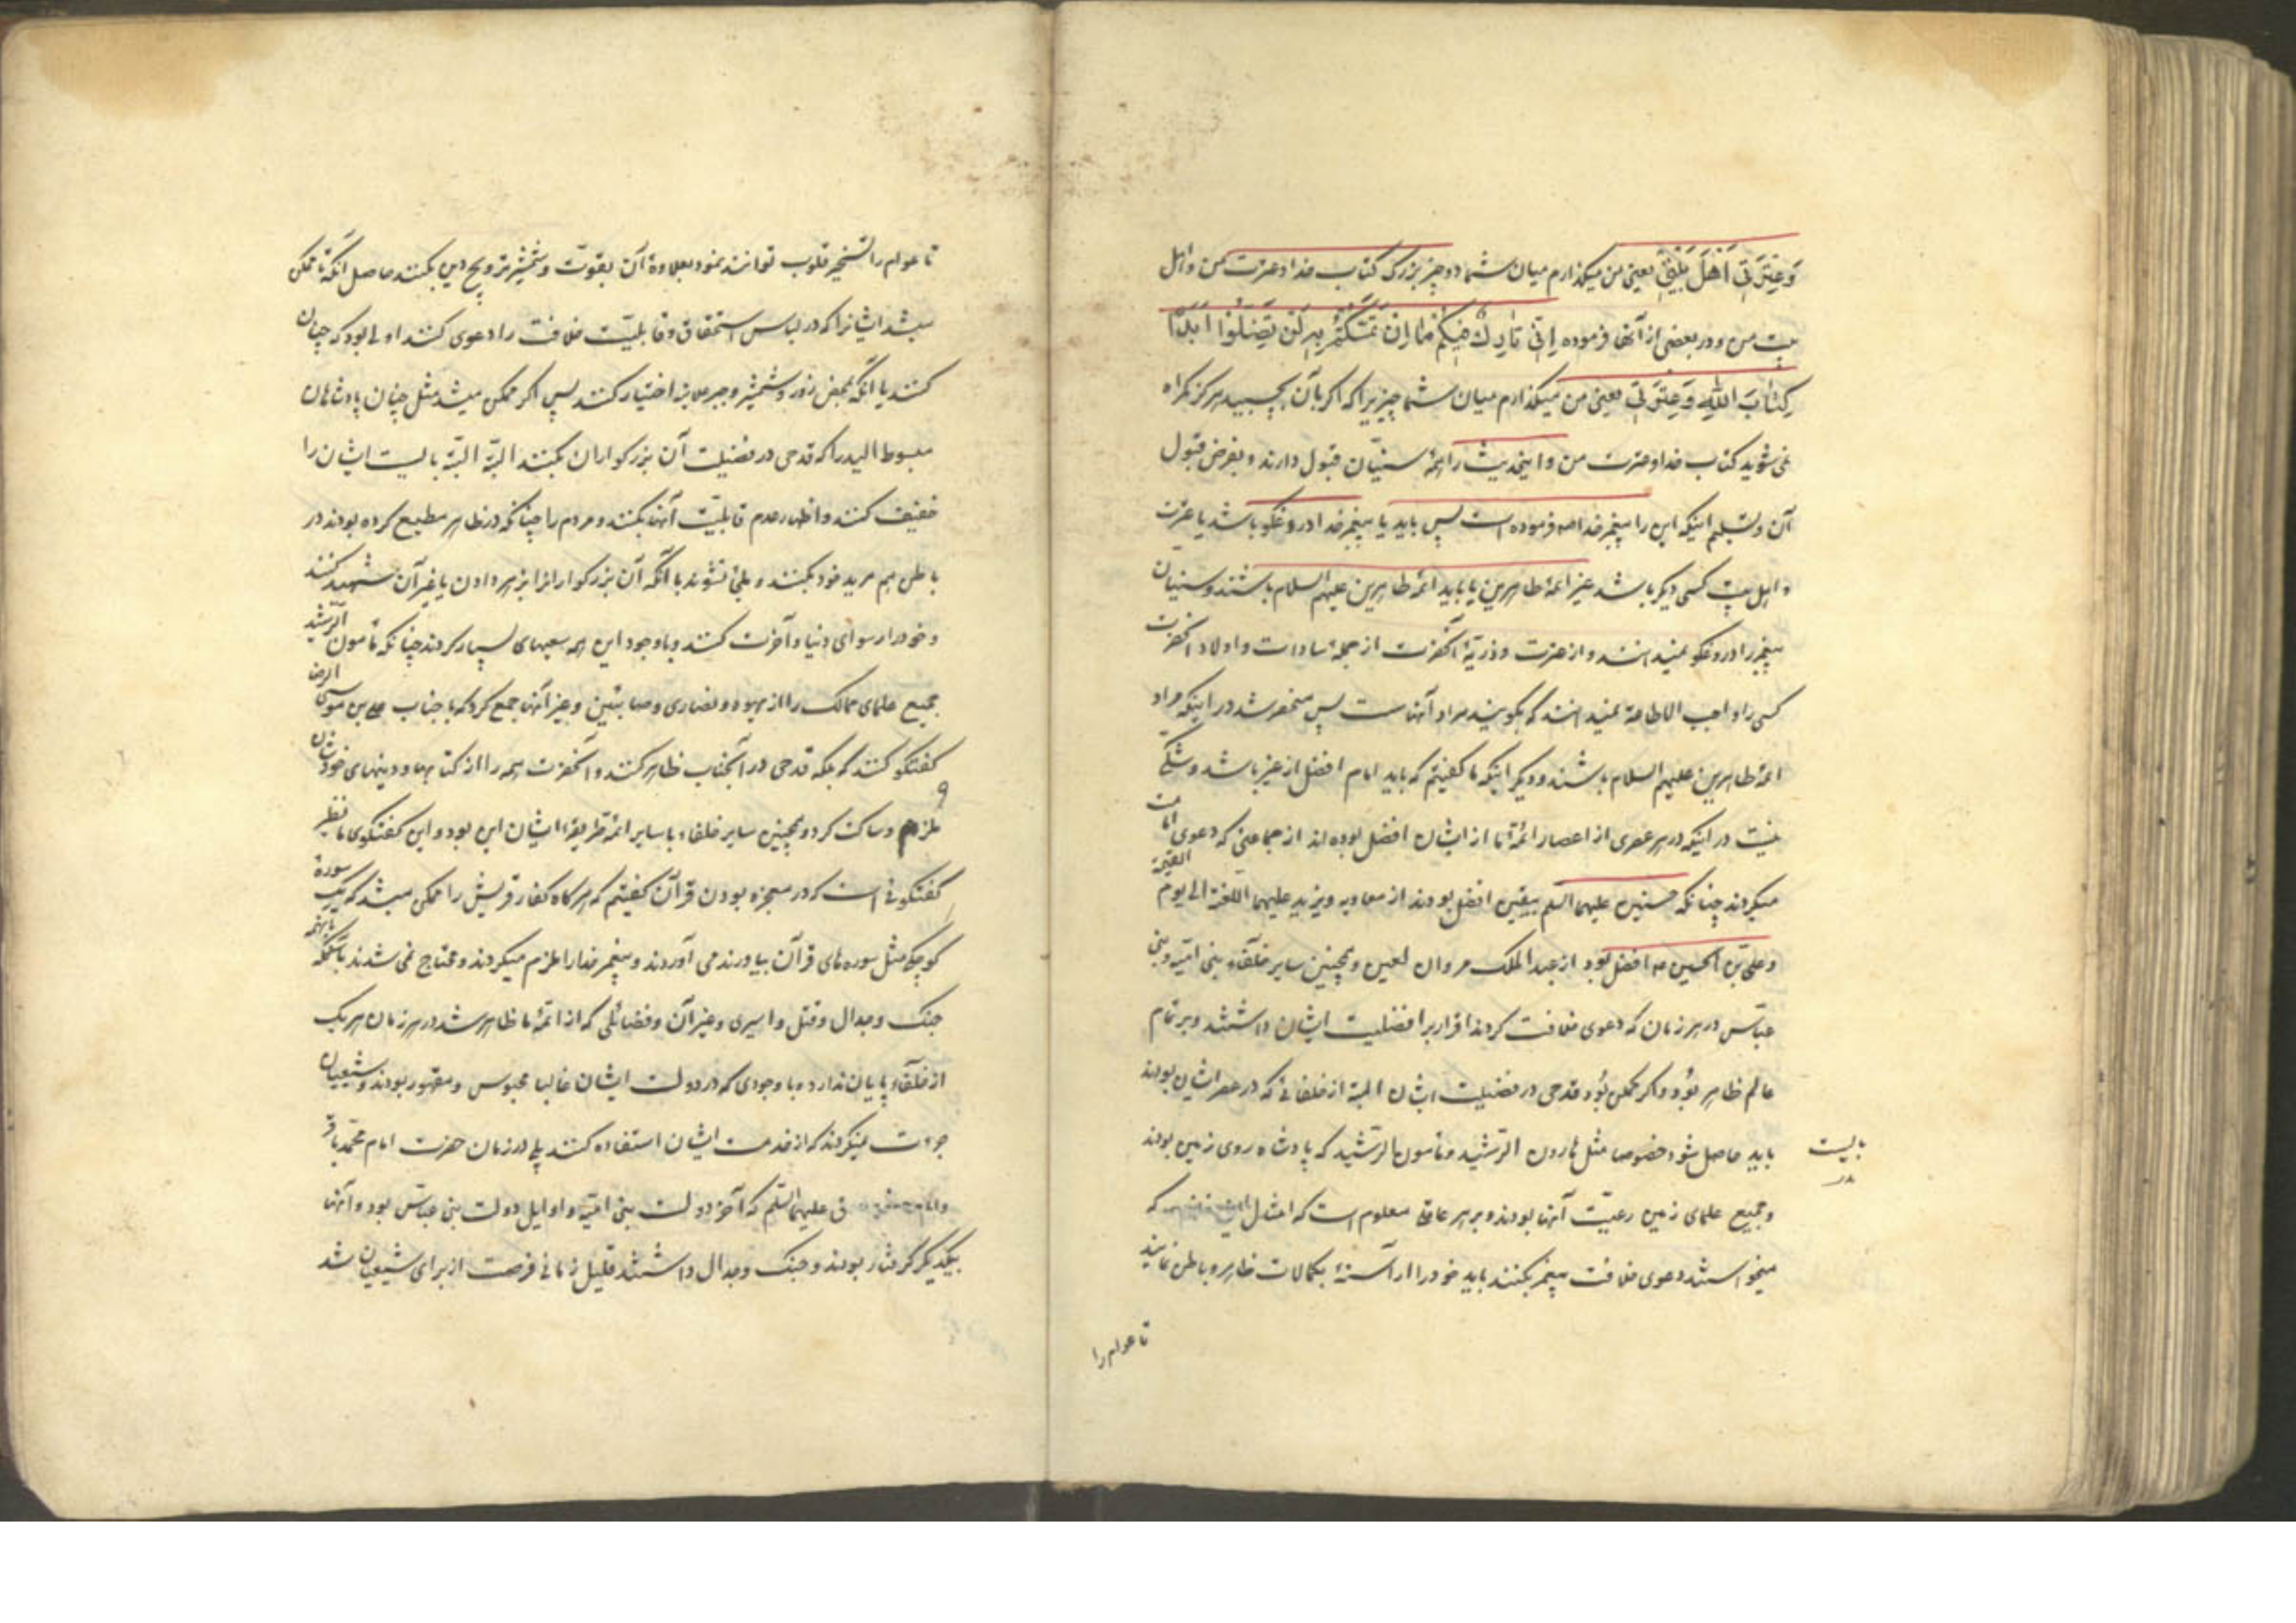 وَعِتْرَتِي أَهْلَ بَيْتِي یعنی من میکذارم میان شما دو چیز بزرک کتاب خدا و عترت من و اهل
بیت من و در بعضی از آنها فرموده اِنّی تارِكٌ فیکُم ما اِن تَمَسَّکْتُم بِهِ لَن تَضِلُّوا اَبَدًا
کِتابَ اللهِ وَعِتْرَتی یعنی من میکذارم میان شما چیزیرا که اکر بآن بچسبید هرکز کمراه
نمی شوید کتاب خدا و عترت من و اینحدیث را همهٔ سنیّان قبول دارند و بفرض قبول
آن و تسلیم اینکه این را پیغمبر خدا ص فرموده است پس باید یا پیغمبر خدا دروغکو باشد یا عترت
و اهل بیت کسی دیکر باشد غیر ائمهٔ طاهرین یا باید ائمهٔ طاهرین علیهم السلام باشند و سنیان
پیغمبر را دروغکو نمیدانند و از عترت و ذریّهٔ آنحضرت از جملهٔ سادات و اولاد آنحضرت
کسی را واجب الاطاعة نمیدانند که بکویند مراد آنهاست پس منحصر شد در اینکه مراد
ائمهٔ طاهرین علیهم السلام باشند و دیکر اینکه ما کفتیم که باید امام افضل از غیر باشد و شکّی
نیست در اینکه در هر عصری از اعصار ائمّهٔ ما از ایشان افضل بوده اند از جماعتی که دعوی امامت
میکردند چنانکه حسنین علیهما السلم بیقین افضل بودند از معاویه و یزید علیهما اللعنة الی یوم القیمة
و علی بن الحسین ع افضل بود از عبد الملک مروان لعین و همچنین سایر خلفاء بنی امیّه و بنی
عبّاس در هر زمان که دعوی خلافت کردند اقرار بر افضلیت ایشان داشتند و بر تمام
عالم ظاهر بود و اکر ممکن بود قدحی در فضیلت ایشان البته از خلفائی که در عصر ایشان بودند
باید حاصل شود خصوصا مثل هارون الرّشید و مامون الرّشید که پادشاه روی زمین بودند
بایست
و جمیع علمای زمین رعیّت آنها بودند و بر هر عاقلی معلوم است که امثال که
میخواستند دعوی خلافت پیغمبر بکنند باید خود را آراستهٔ بکمالات ظاهر و باطن نمایند
تا عوام را
تا عوام را تسخیر قلوب توانند نمود بعلاوهٔ آن بقوّت و شمشیر ترویج دین بکنند حاصل آنکه تا ممکن
میشد ایشانرا که در لباس استحقاق و قابلیّت خلافت را دعوی کنند اولی بود که چنان
کنند یا آنکه بمحض زور و شمشیر و جبر علانیه اختیار کنند پس اکر ممکن میشد مثل چنان پادشاهان
مبسوط الید را که قدحی در فضیلت آن بزرکواران بکنند البتّه البتّه بایست ایشان را
خفیف کنند و اظهار عدم قابلیّت آنها بکنند و مردم را چنانکه در ظاهر مطیع کرده بودند در
باطن هم مرید خود بکنند و ملجأ نشوند با آنکه آن بزرکوارانرا بزهر دادن یا غیر آن شهید کنند
و خود را رسوای دنیا و آخرت کنند و با وجود این همه سعیهای بسیار کردند چنانکه مأمون الرّشید
جمیع علمای ممالک را از یهود و نصاری و صابئین و غیر آنها جمع کرد که با جناب علی بن موسی الرضا
کفتکو کنند که بلکه قدحی در آنجناب ظاهر کنند و آنحضرت همه را از کتابها و دینهای خودشان
ملزم و ساکت کرد و همچنین سایر خلفاء با سایر ائمّه طریقهٔ ایشان این بود و این کفتکوی ما نظیر
کفتکوئی است که در معجزه بودن قرآن کفتیم که هرکاه کفار قریش را ممکن میشد که یک سورهٔ
کوچکی مثل سوره های قرآن بیاورند می آوردند و پیغمبر خدا را ملزم میکردند و محتاج نمی شدند باینهمه
جنک و جدال و قتل و اسیری و غیر آن و فضائلی که از ائمّهٔ ما ظاهر شد در هر زمان هر یک
از خلفاء پایان ندارد و با وجودی که در دولت ایشان غالبا محبوس و مقهور بودند و شیعیان
جرءت نمیکردند که از خدمت ایشان استفاده کنند بلی در زمان حضرت امام محمّد باقر
و امام علیهما السّلم که آخر دولت بنی امیّه و اوایل دولت بنی عبّاس بود و آنها
بیکدیکر کرفتار بودند و جنک و جدال داشتند قلیل زمانی فرصت از برای شیعیان شد